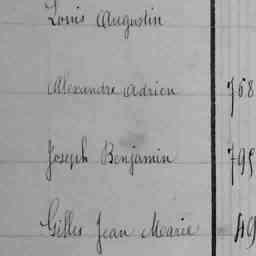 Louis Augustin
Alexandre Adrien 768
Joseph Benjamin 795
Gilles Jean Marie 49